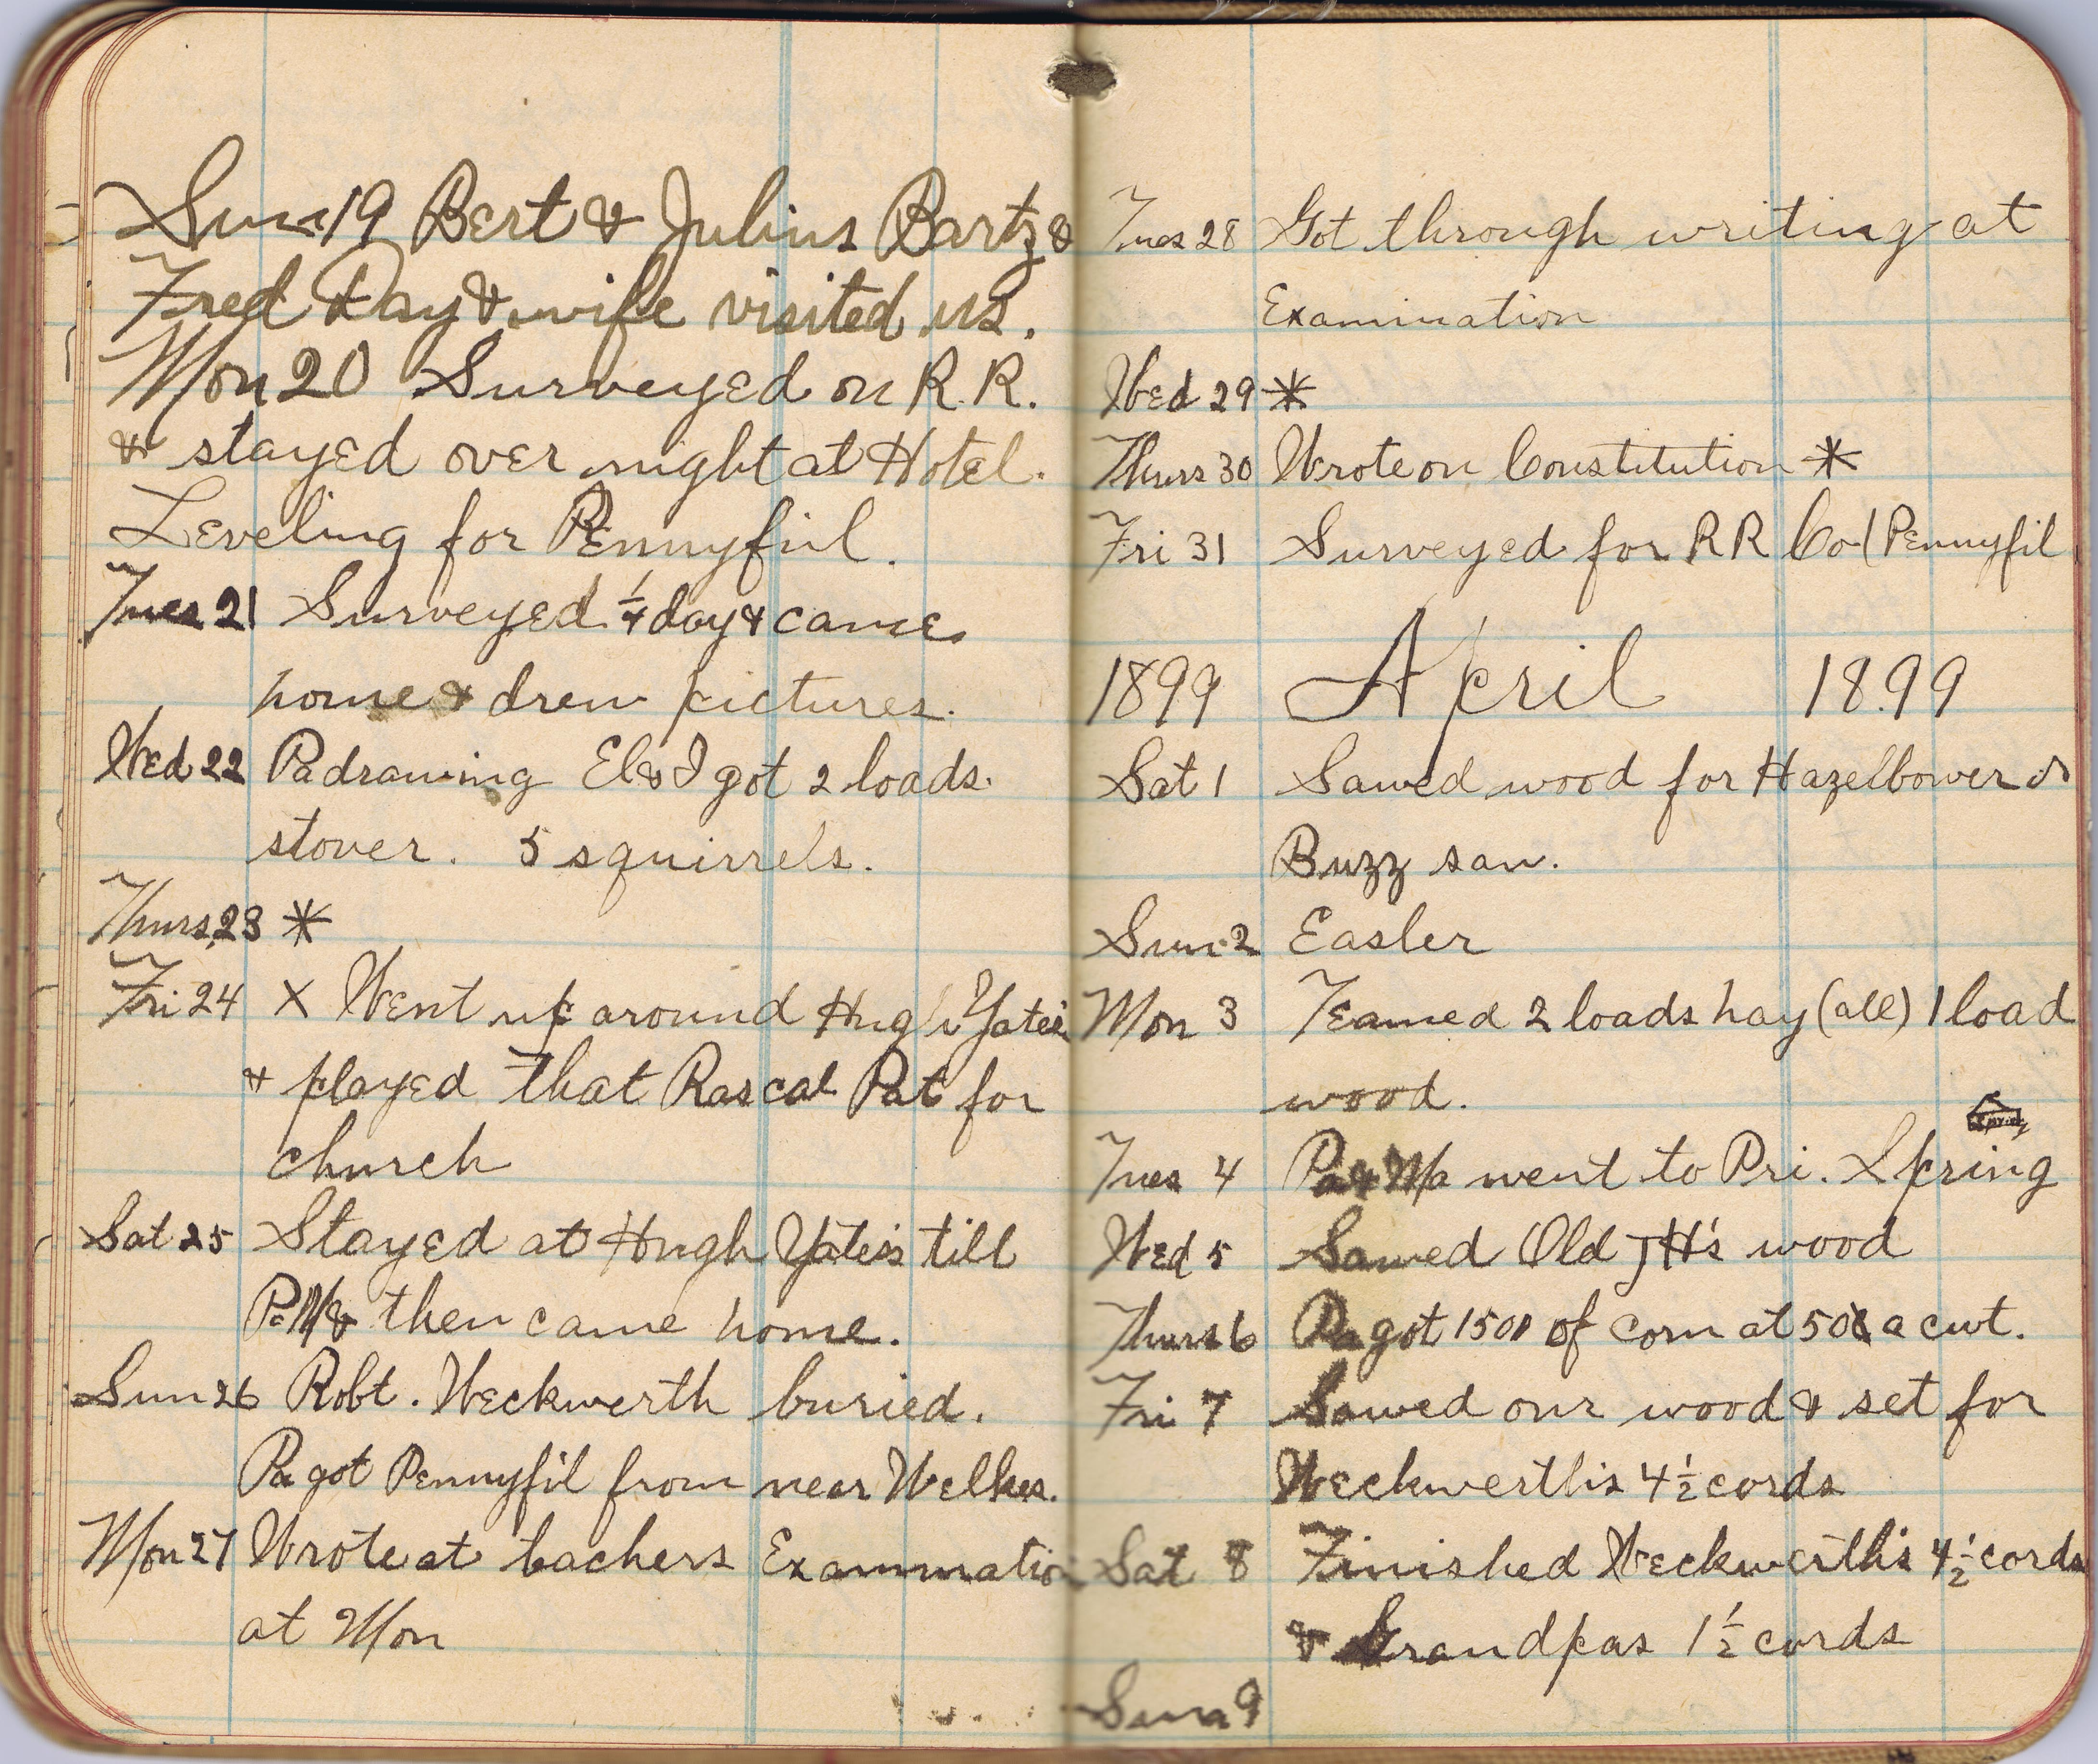 Sun 19 Bert & Julius Bartz &
Fred Day & wife visited us.
Mon 20 Surveyed on R.R.
& stayed over night at Hotel.
Leveling for Pennyfiil.
Tues 21 Surveyed 1/4 day & came
home & drew pictures.
Wed 22 Pa drawing El & I got 2 loads
stover. 5 squirrels.
Thurs 23 *
Fri 24 X Went up around Hugh Yates
& played that Rascal Pat for
church
Sat 25 Stayed at Hugh Yates's till
P.M. & then came home.
Sun 26 Robt. Weckwerth buried.
Pa got Pennyfil from near Welkes.
Mon 27 Wrote at teachers Examination
at Mon
Tues 28 Got through writing at
Examination
Wed 29 *
Thurs 30 Wrote on Constitution *
Fri 31 Surveyed for RR Co (Pennyfil
1899 April 1899
Sat 1 Sawed wood for Hazelbower &
Buzz saw.
Sun 2 Easter
Mon 3 Teamed 2 loads hay (all) 1 load
wood.
Tues 4 Pa & Ma went to Pri. Spring
Wed 5 Sawed Old JH's wood
Thurs 6 Pa got 150# of corn at 50¢ a cwt.
Fri 7 Sawed our wood & set for
Weckwerth's 4 1/2 cords
Sat 8 Finished Weckwerth's 4 1/2 cords
& Grandpas 1 1/2 cords
Sun 9